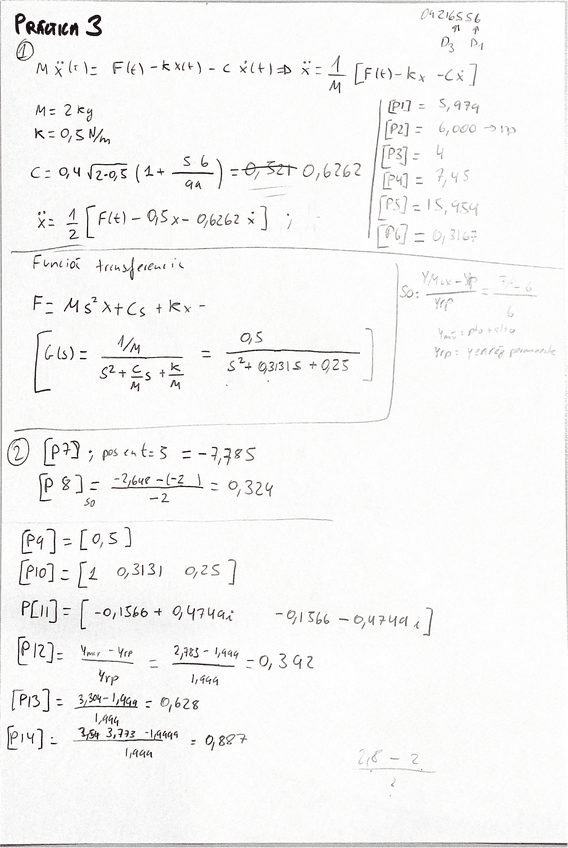 PRÁCTICA 3
09216556
D3 D1
①
M ẍ(t) = F(t) - kx(t) - c ẋ(t) => ẍ = 1/M [F(t) - kx - cẋ]
M = 2 kg
K = 0,5 N/m
C = 0,4 √2·0,5 (1 + 56/99) = 0,521 0,6262
ẍ = 1/2 [F(t) - 0,5x - 0,6262 ẋ] ;
[P1] = 5,979
[P2] = 6,000
[P3] = 4
[P4] = 7,45
[P5] = 15,954
[P6] = 0,3167
Función transferencia
F = Ms²X + Cs + Kx -
[G(s) = (1/M)/(s² + C/M s + K/M) = 0,5/(s² + 0,3131s + 0,25)]
So:
Yrp
6
Yrp: y en rég permanente
② [P7] ; pos en t=5 = -7,785
[P8] so = (-2,648 - (-2))/-2 = 0,324
[P9] = [0,5]
[P10] = [1 0,3131 0,25]
P[11] = [-0,1566 + 0,4749i -0,1566 - 0,4749i]
[P12] = (Ymax - Yrp)/Yrp = (2,783 - 1,999)/1,999 = 0,392
[P13] = (3,304 - 1,999)/1,999 = 0,628
[P14] = (3,54 3,773 - 1,9999)/1,999 = 0,887
2,8 - 2
2